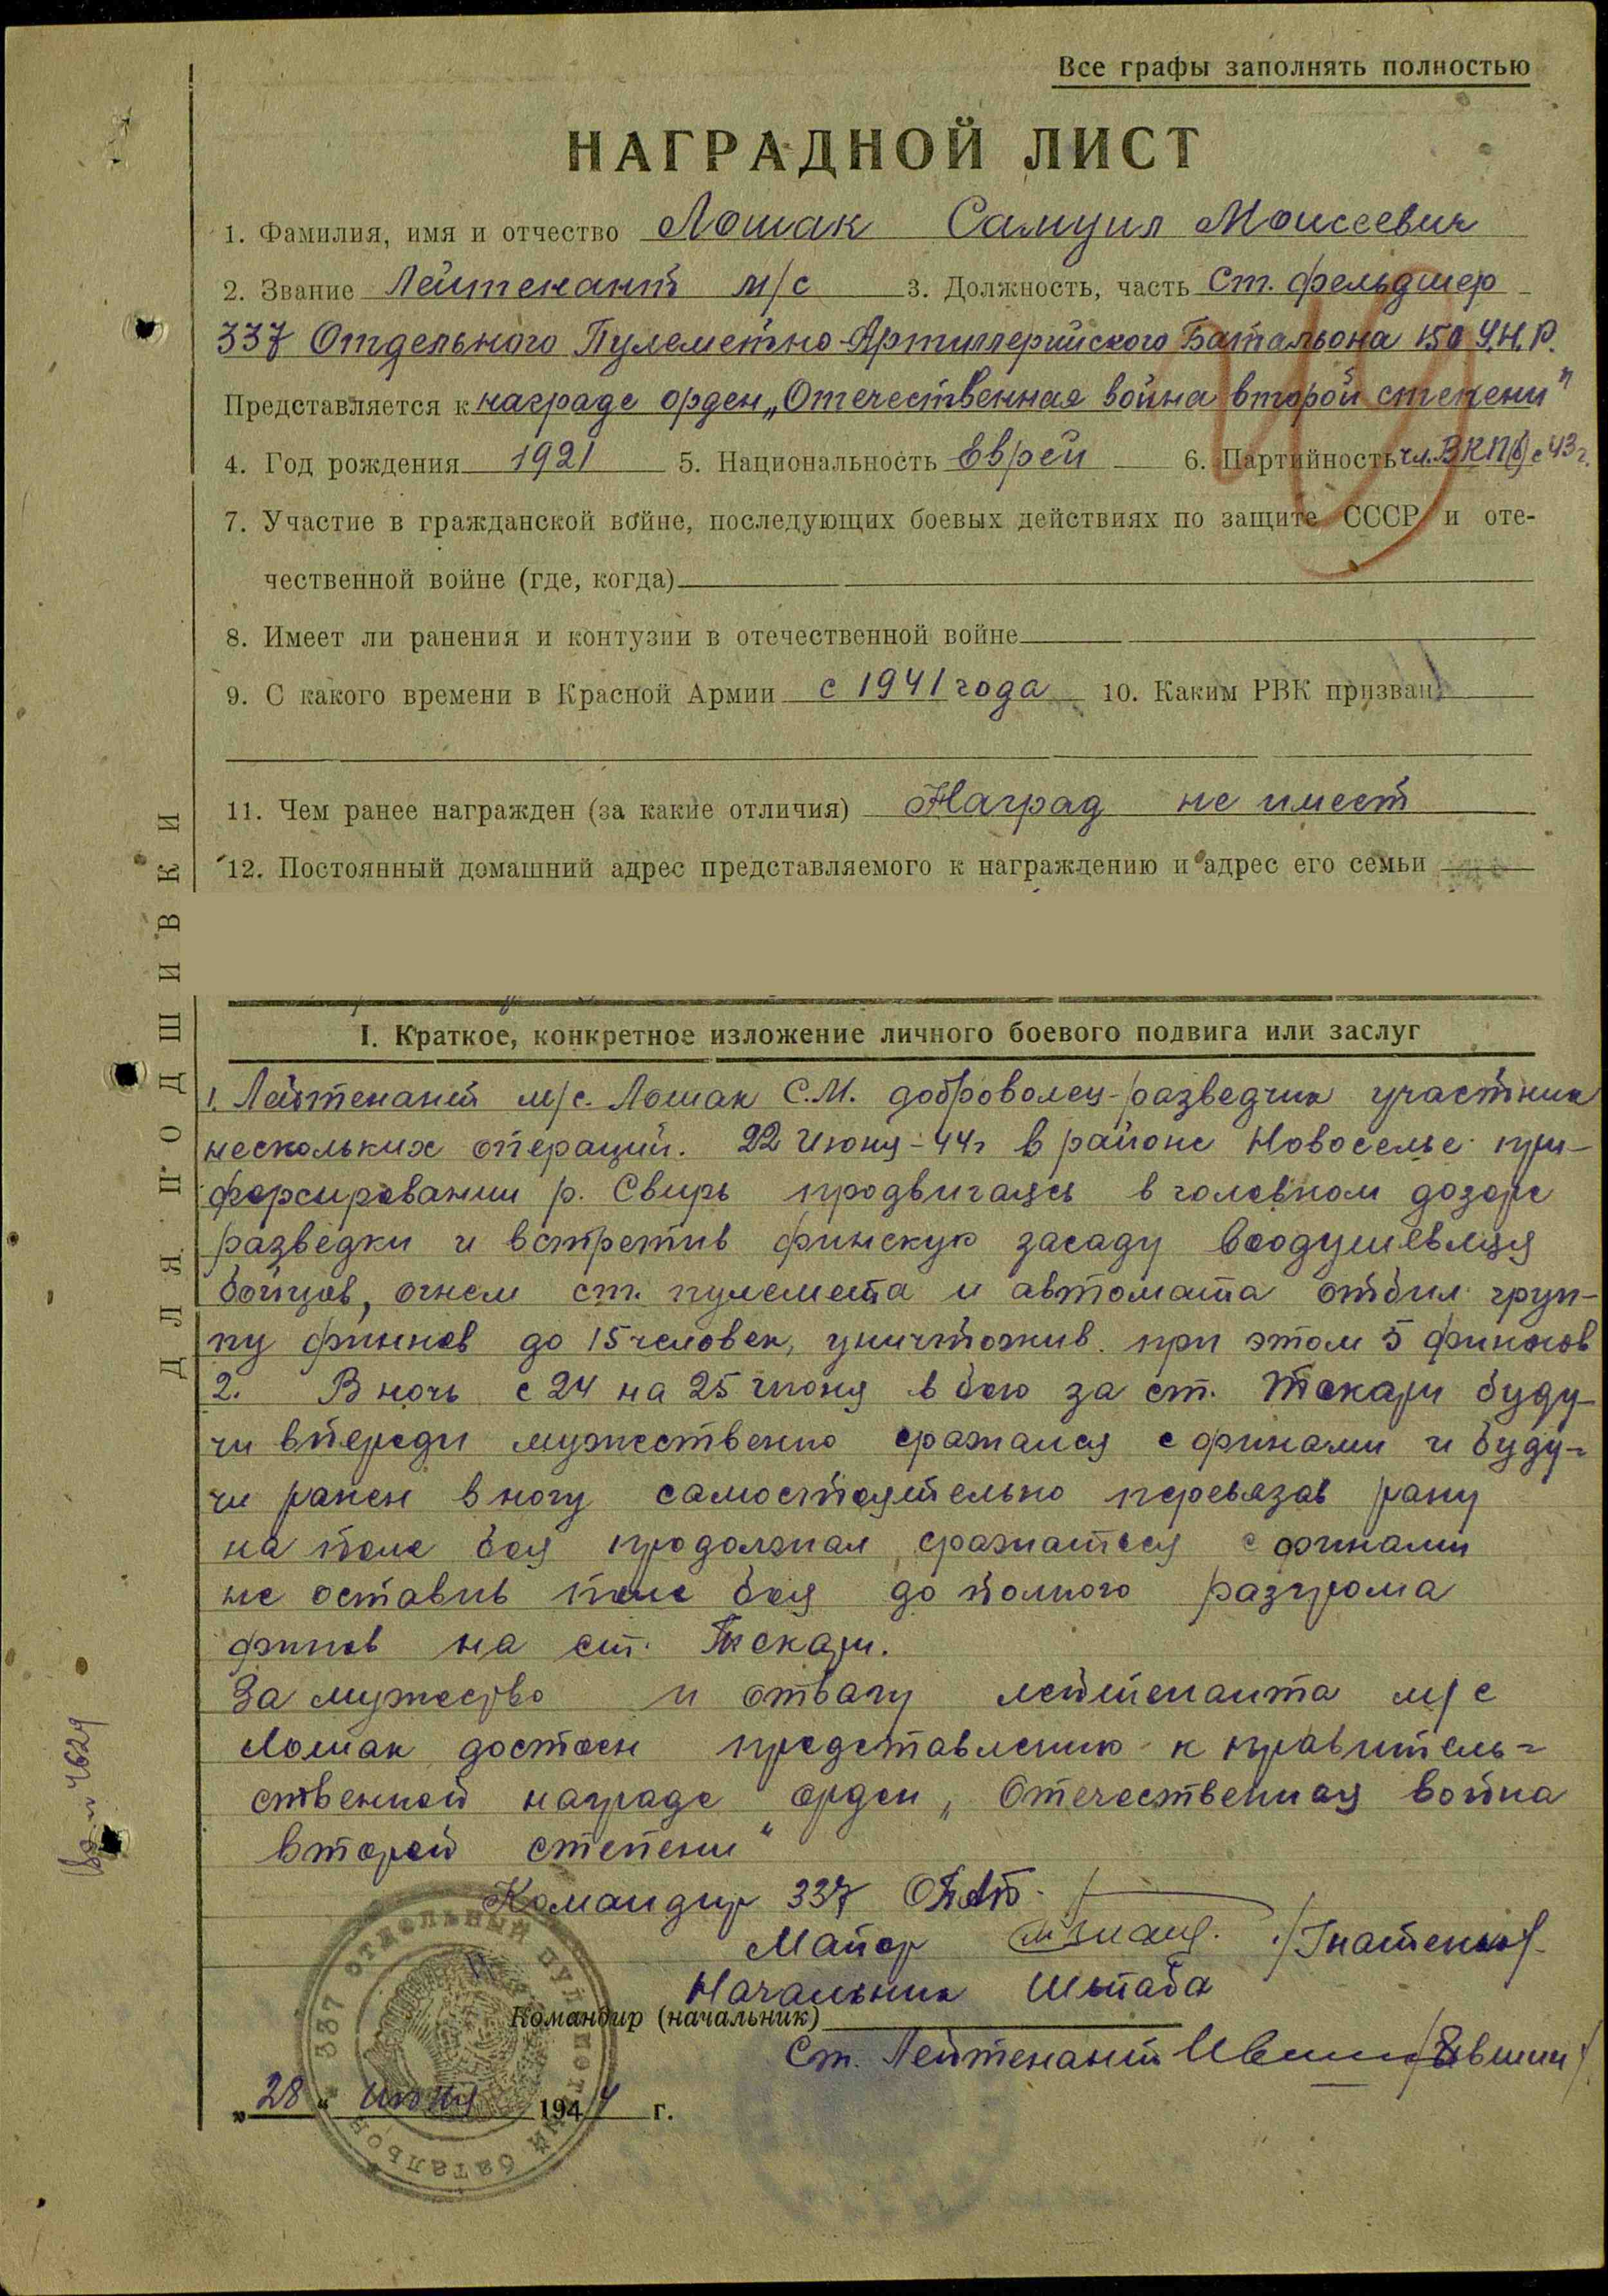 Все графы заполнять полностью
НАГРАДНОЙ ЛИСТ
1. Фамилия, имя и отчество Лошак Самуил Моисеевич
2. Звание Лейтенант м/с 3. Должность, часть Ст. фельдшер
337 Отдельного Пулеметно-Артиллерийского Батальона 150 У.Н.Р.
Представляется к награде орден „Отечественная война второй степени"
4. Год рождения 1921 5. Национальность Еврей 6. Партийность чл. ВКП(б) с 43 г.
7. Участие в гражданской войне, последующих боевых действиях по защите СССР и оте-
чественной войне (где, когда)
8. Имеет ли ранения и контузии в отечественной войне
9. С какого времени в Красной Армии с 1941 года 10. Каким РВК призван
11. Чем ранее награжден (за какие отличия) Наград не имеет
12. Постоянный домашний адрес представляемого к награждению и адрес его семьи
ДЛЯ ПОДШИВКИ
I. Краткое, конкретное изложение личного боевого подвига или заслуг
1. Лейтенант м/с. Лошак С.М. доброволец-разведчик участник
нескольких операций. 22 Июня-44г в районе Новоселье при-
форсировании р. Свирь продвигаясь в головном дозоре
разведки и встретив финскую засаду воодушевляя
бойцов, огнем ст. пулемета и автомата отбил груп-
пу финнов до 15 человек, уничтожив при этом 5 финнов
2. В ночь с 24 на 25 июня в бою за ст. Токари буду-
чи впереди мужественно сражался с финами и буду-
чи ранен в ногу самостоятельно перевязав рану
на поле боя продолжал сражаться с финами
не оставив поле боя до полного разгрома
финов на ст. Токари.
За мужество и отвагу лейтенанта м/с
Лошак достоен представлению к правитель-
ственной награде орден „Отечественная война
второй степени"
Командир 337 ОПАБ.
Майор /Гнатенко/
Начальник Штаба
Командир (начальник)
Ст. Лейтенант /Ившин/
„28" июня 1944 г.
337 отдельный пулеметный батальон
4629